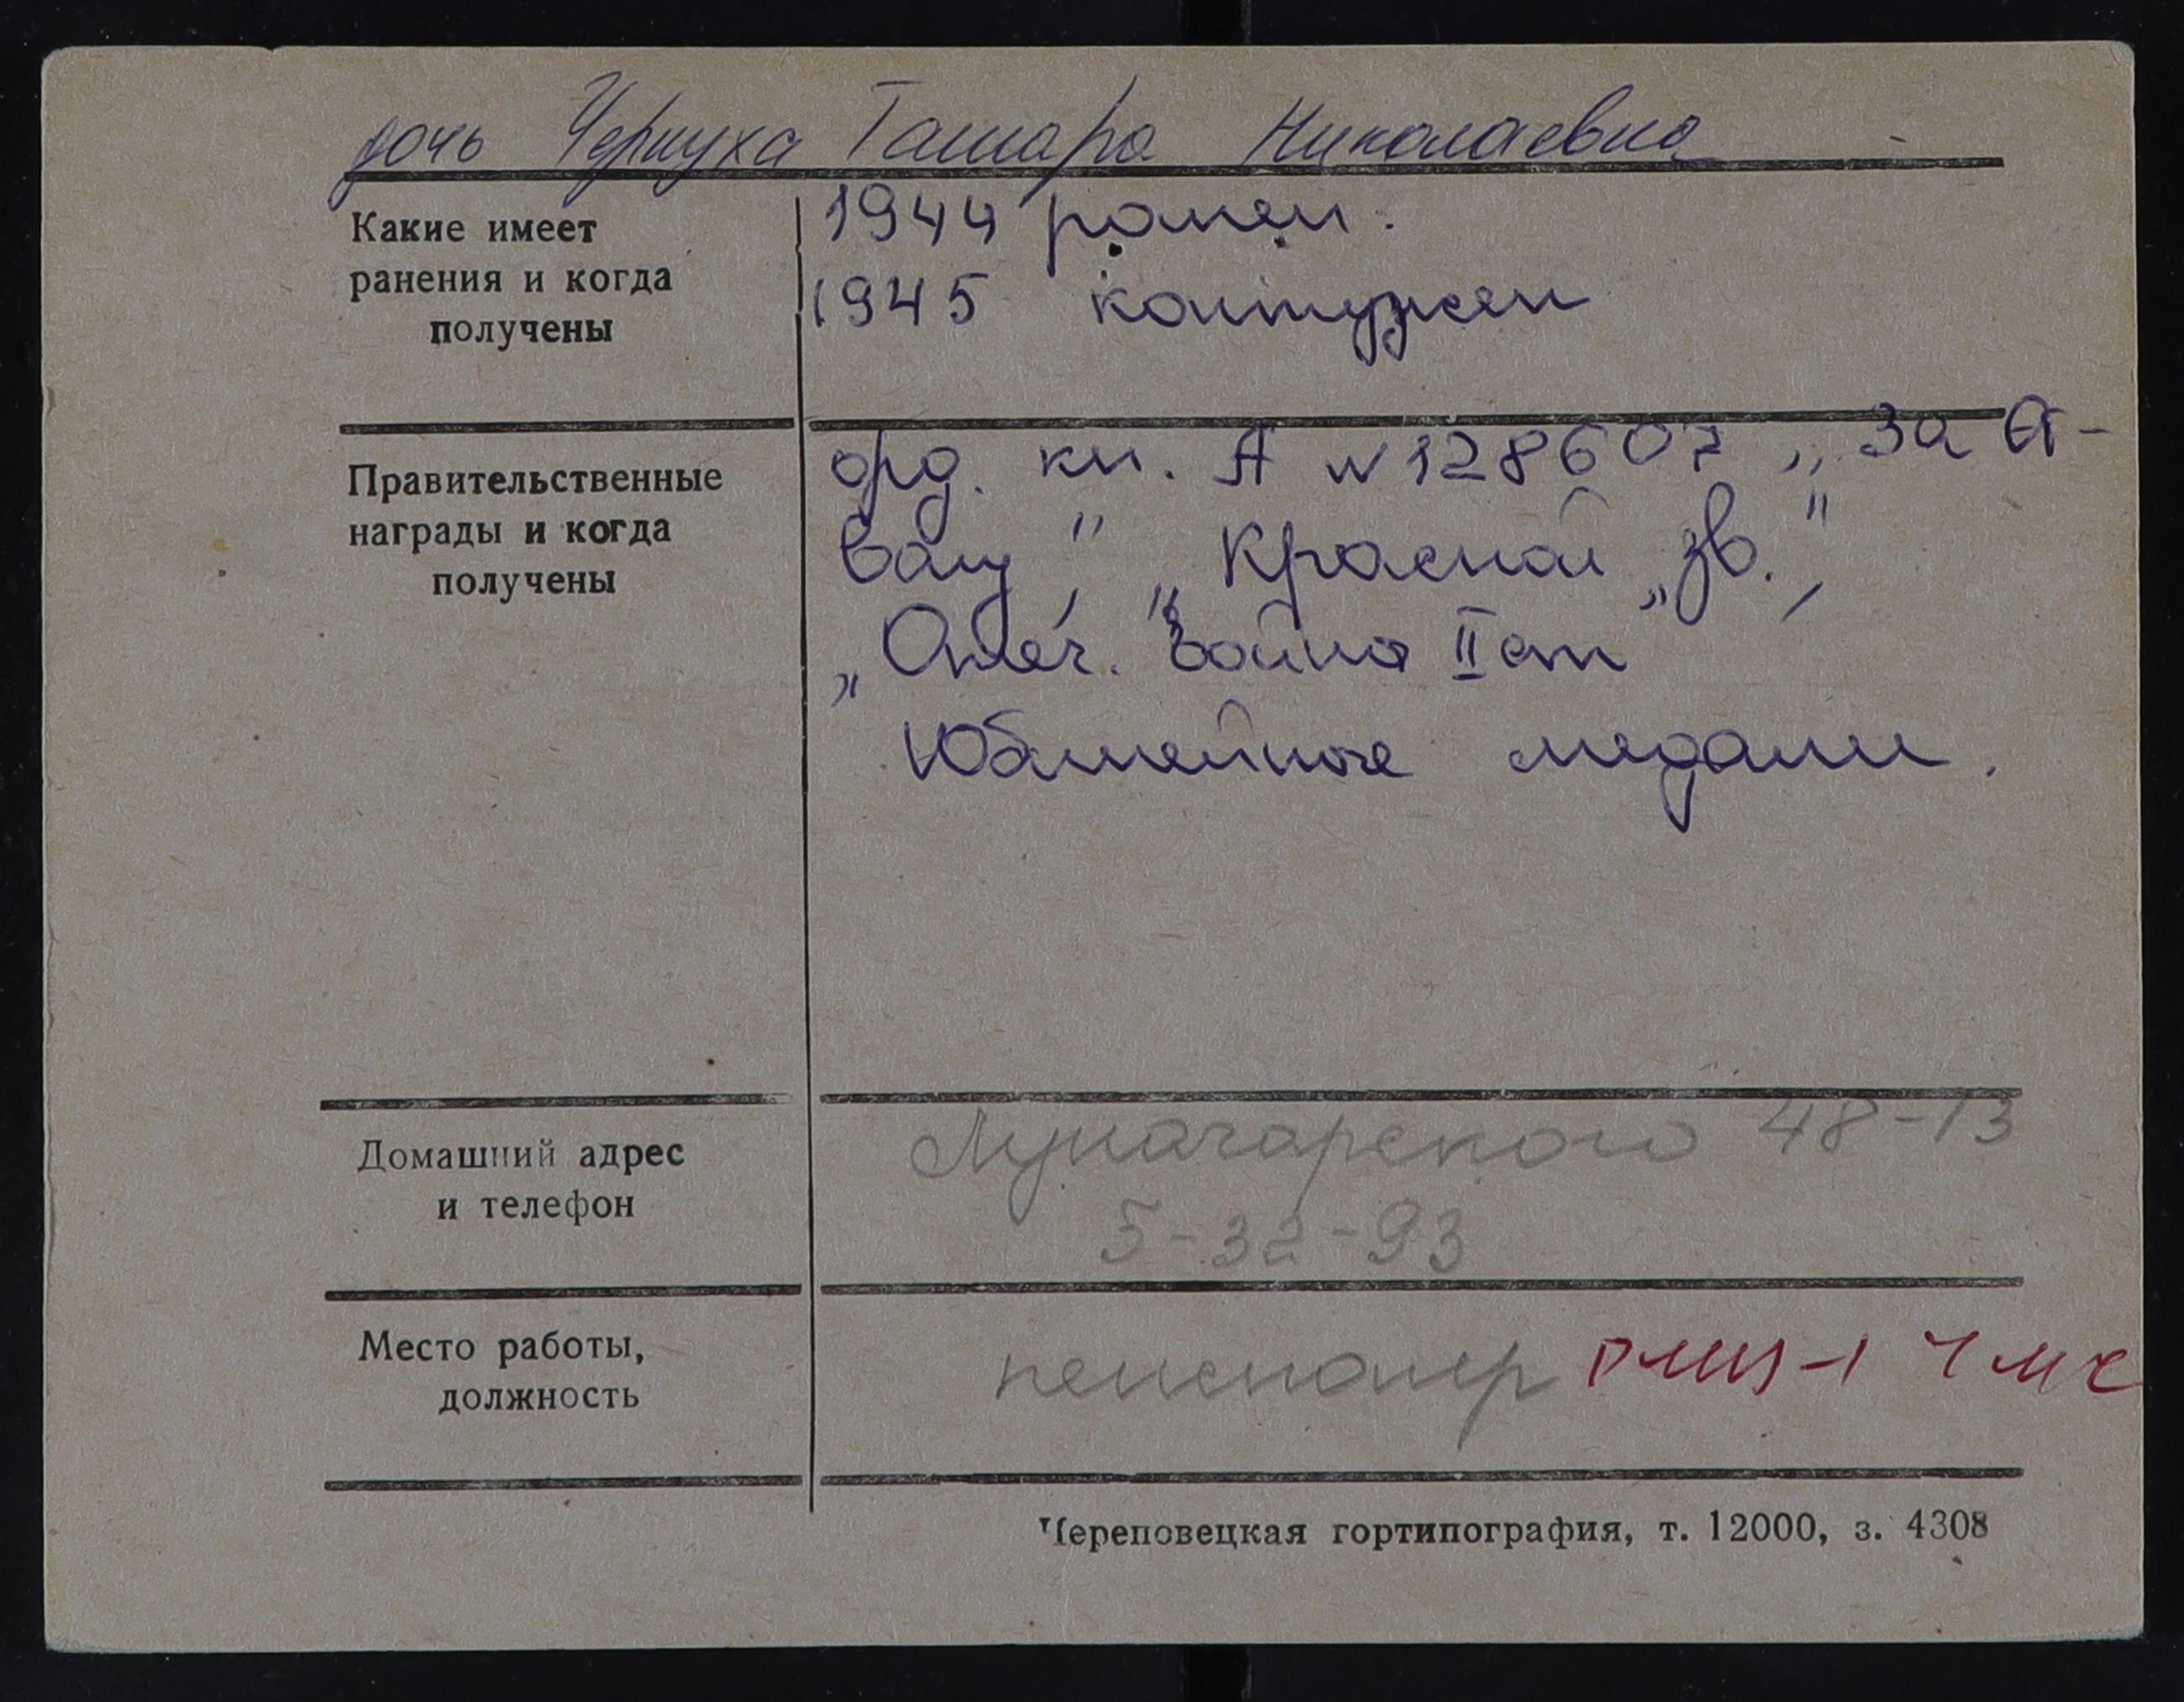 дочь Чернуха Тамара Николаевна
Какие имеет
ранения и когда
получены
1944 ранен.
1945 контужен
Правительственные
награды и когда
получены
орд. кн. А № 128607 „За От-
вагу", „Красной „Зв.",
„Отеч. война II ст"
Юбилейные медали.
Домашний адрес
и телефон
Луначарского 48-13
5-32-93
Место работы,
должность
пенсионер РМЦ-1 ЧМК
Череповецкая гортипография, т. 12000, з. 4308